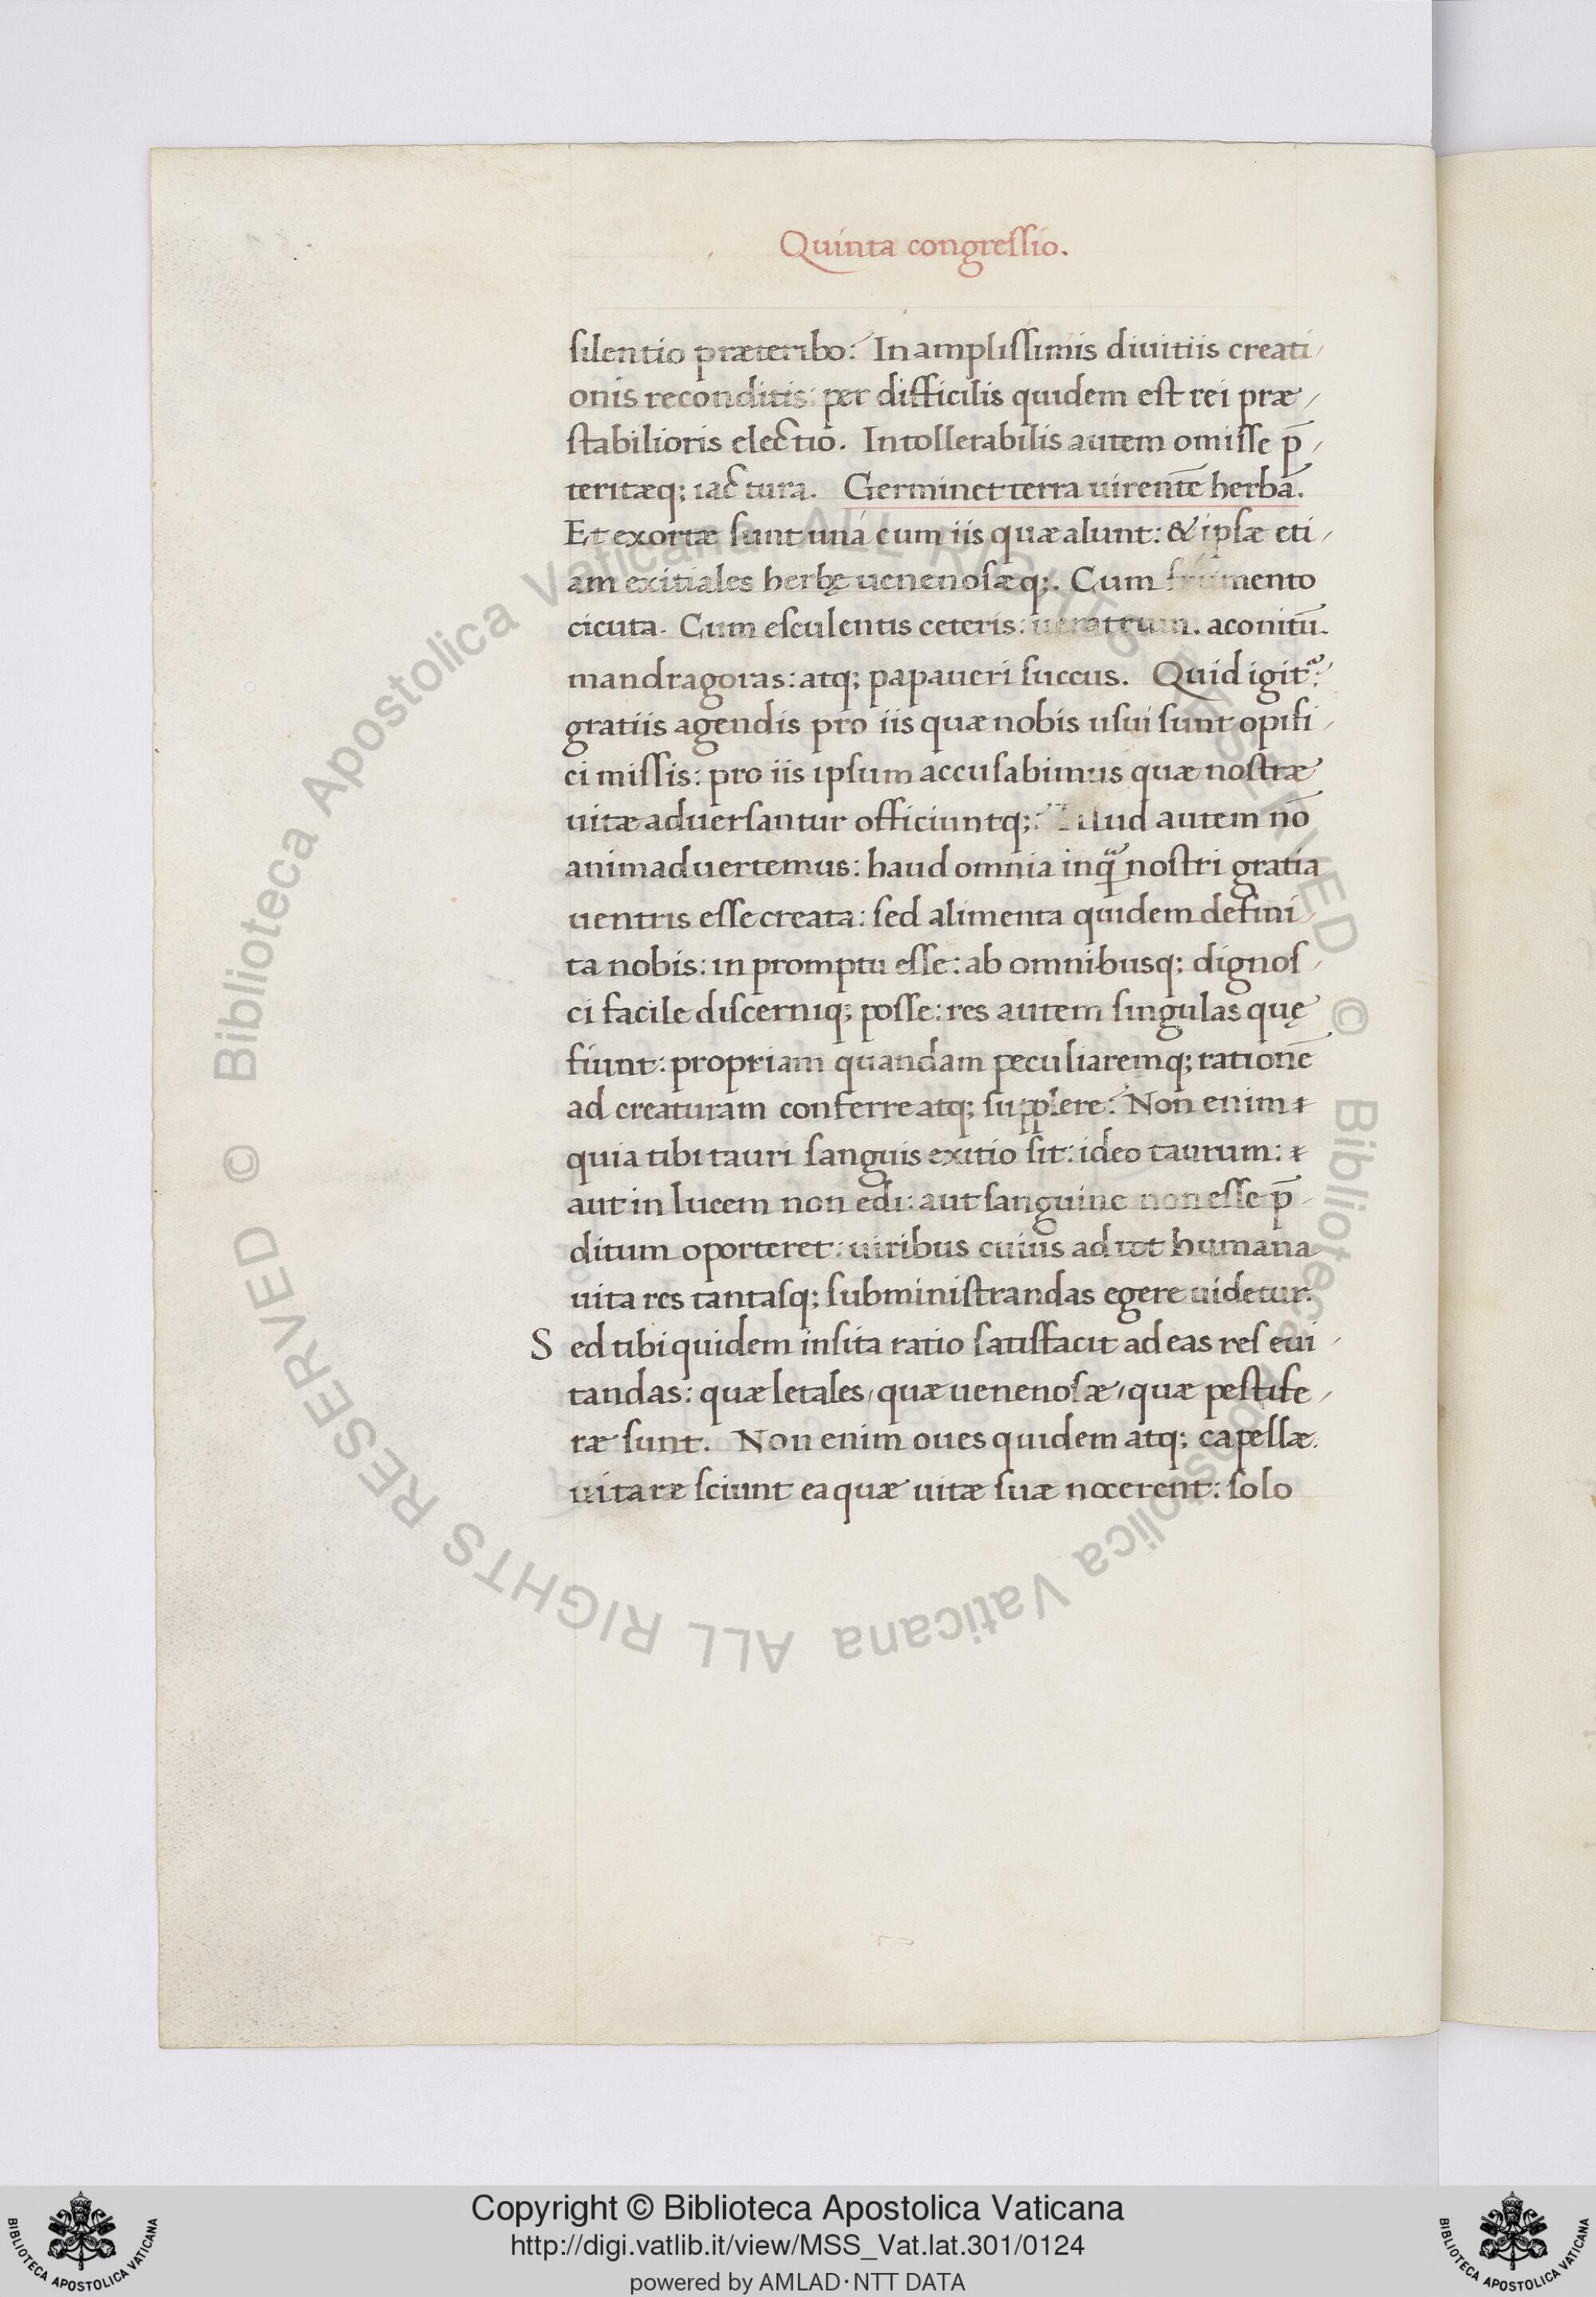 Quinta congressio.
silentio præteribo: In amplissimis diuitiis creati
onis reconditis: per difficilis quidem est rei præ
stabilioris electio. Intollerabilis autem omisse p̄
teritæq; iactura. Germinet terra uirentē herbā.
Et exortæ sunt unà cum iis quæ alunt: & ipsæ eti
am exitiales herbę uenenosæq;. Cum frumento
cicuta. Cum esculentis ceteris: ueratrum. aconitū.
mandragoras: atq; papaueri succus. Quid igit᷑:
gratiis agendis pro iis quæ nobis usui sunt opifi
ci missis: pro iis ipsum accusabimus quæ nostræ
uitæ aduersantur officiuntq;: Illud autem nō
animaduertemus: haud omnia inquā nostri gratia
uentris esse creata: sed alimenta quidem defini
ta nobis: in promptu esse: ab omnibusq; dignos
ci facile discerniq; posse: res autem singulas quę
fiunt: propriam quandam peculiaremq; rationē
ad creaturam conferre atq; supplere: Non enim
quia tibi tauri sanguis exitio sit: ideo taurum:
aut in lucem non edi: aut sanguine non esse p̄
ditum oporteret: uiribus cuius ad tot humana
uita res tantasq; subministrandas egere uidetur.
Sed tibi quidem insita ratio satisfacit ad eas res eui
tandas: quæ letales, quæ uenenosæ, quæ pestife
ræ sunt. Non enim oues quidem atq; capellæ.
uitaræ sciunt ea quæ uitæ suæ nocerent: solo
© Biblioteca Apostolica Vaticana ALL RIGHTS RESERVED © Biblioteca Apostolica Vaticana ALL RIGHTS RESERVED
Copyright © Biblioteca Apostolica Vaticana
http://digi.vatlib.it/view/MSS_Vat.lat.301/0124
powered by AMLAD·NTT DATA
BIBLIOTECA APOSTOLICA VATICANA
BIBLIOTECA APOSTOLICA VATICANA